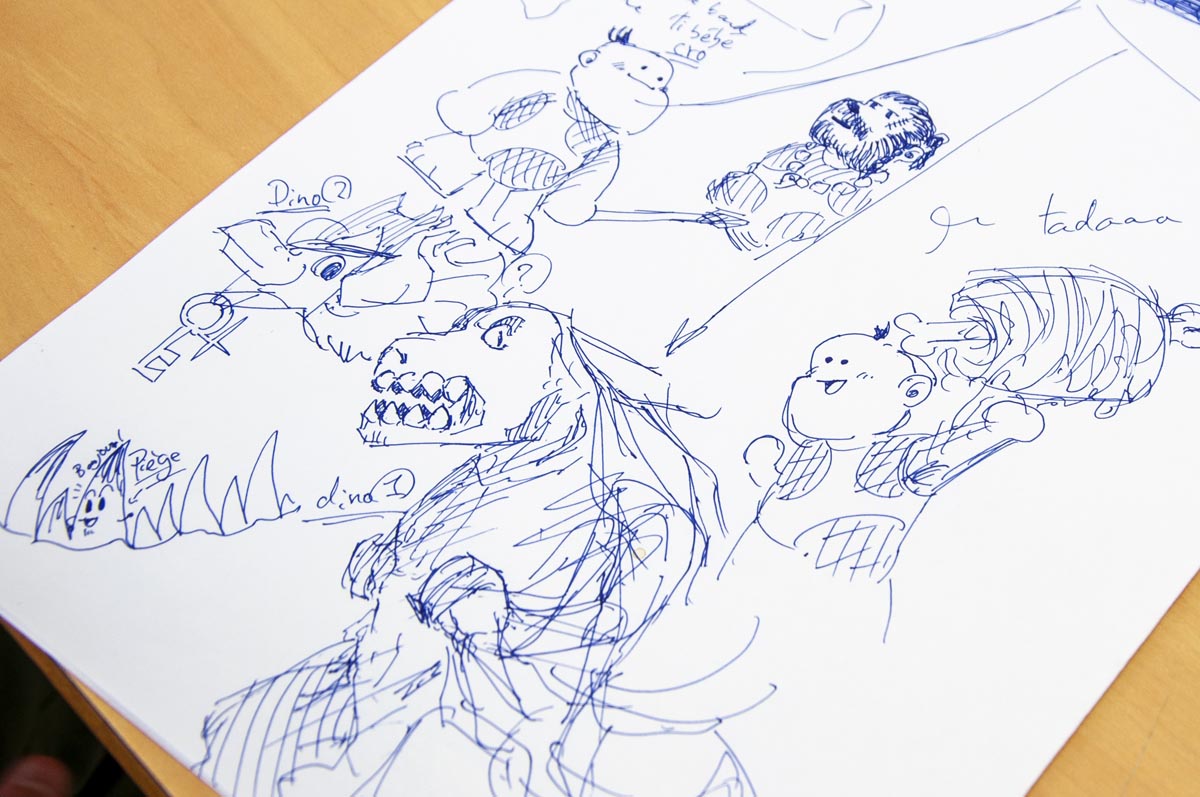 ti bébé
cro
Dino ②
?
tadaaa
Bonjour!
Piège
dino ①